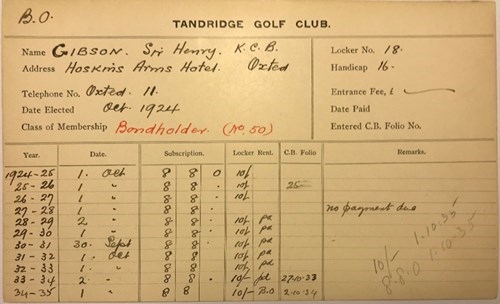 B.O.
TANDRIDGE GOLF CLUB.
Name GIBSON. Sir Henry. K.C.B. Locker No. 18.
Address Hoskins Arms Hotel. Oxted Handicap 16.
Telephone No. Oxted. 11. Entrance Fee, £
Date Elected Oct. 1924 Date Paid
Class of Membership Bondholder (No. 50) Entered C.B. Folio No.
Year. Date. Subscription. Locker Rent. C.B. Folio Remarks.
1924-25 1. Oct 8 8 0 10/-
25-26 1 " 8 8 . 10/- 25
26-27 1 " 8 8 . 10/-
27-28 1 " 8 8 . no payment due
28-29 2 " 8 8 . 10/- pd
29-30 1 " 8 8 . 10/- pd
30-31 30. Sept 8 8 . 10/- pd
31-32 1. Oct 8 8 . 10/- pd
32-33 1. " 8 8 . 10/- pd
33-34 2. " 8 8 . 10/- pd 27.10.33
34-35 1 " 8 8 10/- B.O 2.10.34
10/- 1.10.35
8-8.0 1.10.35